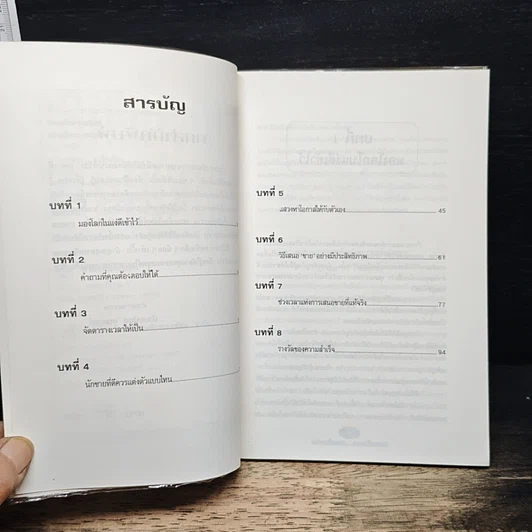 สารบัญ
บทที่ 1
มองโลกในแง่ดีเข้าไว้
บทที่ 2
คำถามที่คุณต้องตอบให้ได้
บทที่ 3
จัดตารางเวลาให้เป็น
บทที่ 4
นักขายที่ดีควรแต่งตัวแบบไหน
บทที่ 5
แสวงหาโอกาสให้กับตัวเอง 45
บทที่ 6
วิธีเสนอ 'ขาย' อย่างมีประสิทธิภาพ 61
บทที่ 7
ช่วงเวลาแห่งการเสนอขายที่แท้จริง 77
บทที่ 8
รางวัลของความสำเร็จ 94